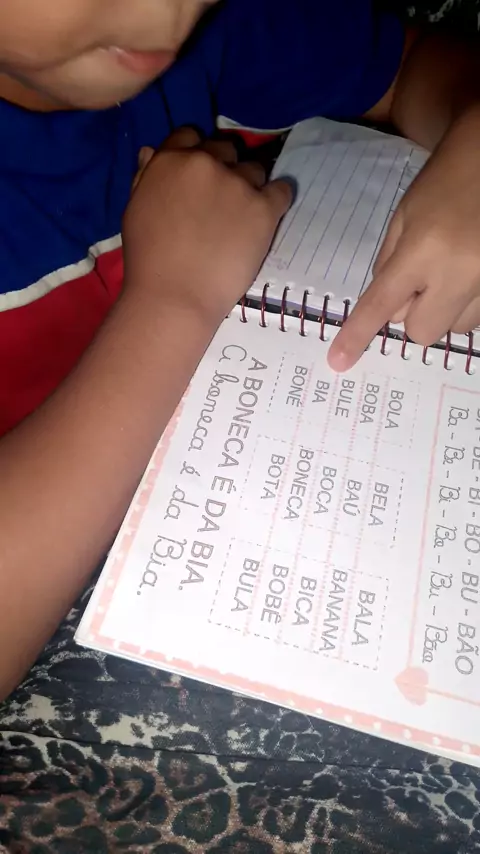 BE - BI - BO - BU - BÃO
Ba - Be - Bi - Bo - Bu - Bão
BOLA BELA BALA
BOBA BAÚ BANANA
BULE BOCA BICA
BIA BONECA BOBÉ
BONÉ BOTA BULA
A BONECA É DA BIA.
A boneca é da Bia.